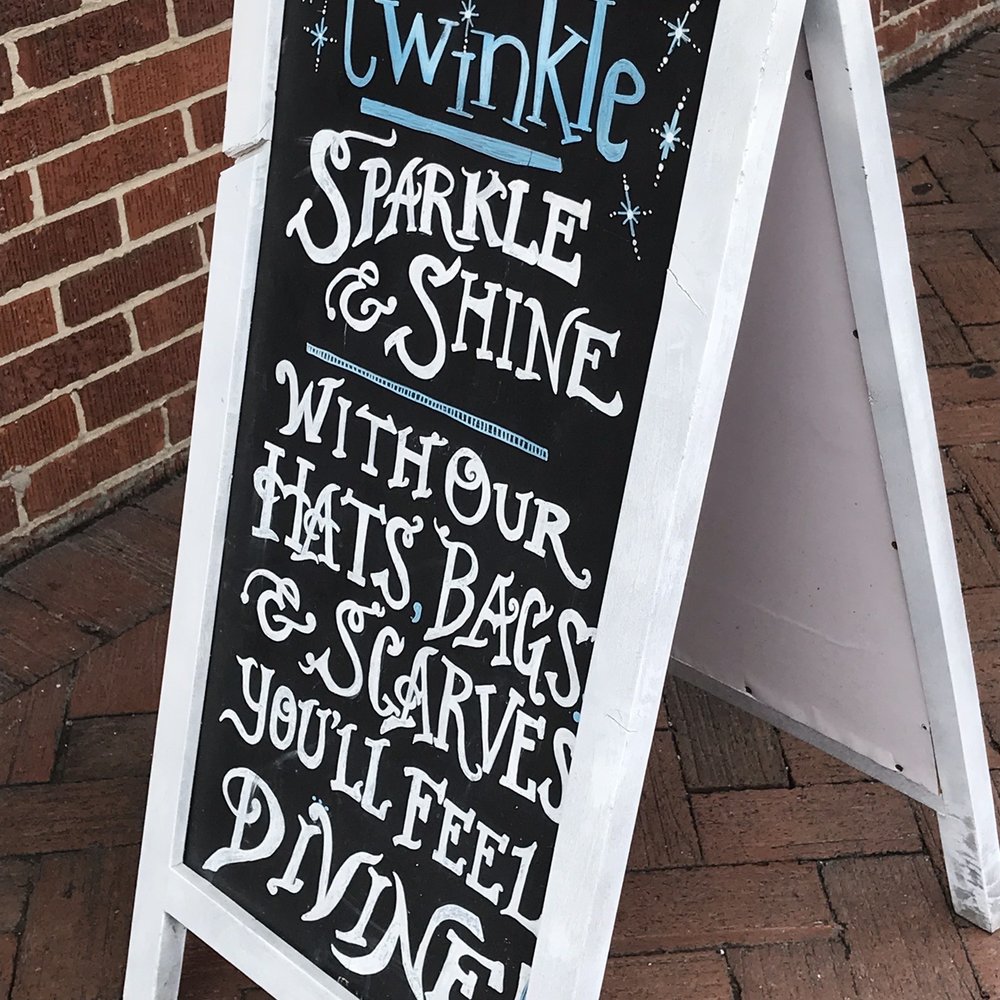 twinkle
SPARKLE
& SHINE
WITH OUR
HATS, BAGS,
& SCARVES
YOU'LL FEEL
DIVINE